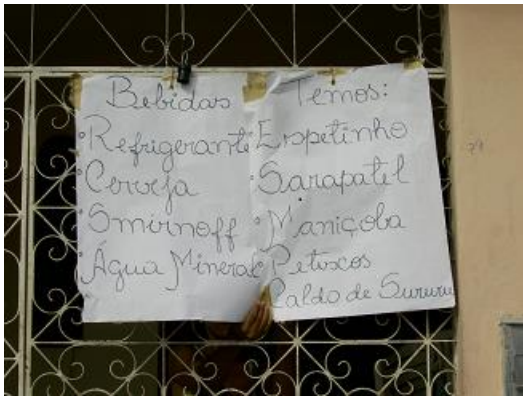 Bebidas
• Refrigerante
• Cerveja
• Smirnoff
• Água Mineral
Temos:
• Espetinho
• Sarapatel
• Maniçoba
• Petiscos
• Caldo de Sururu